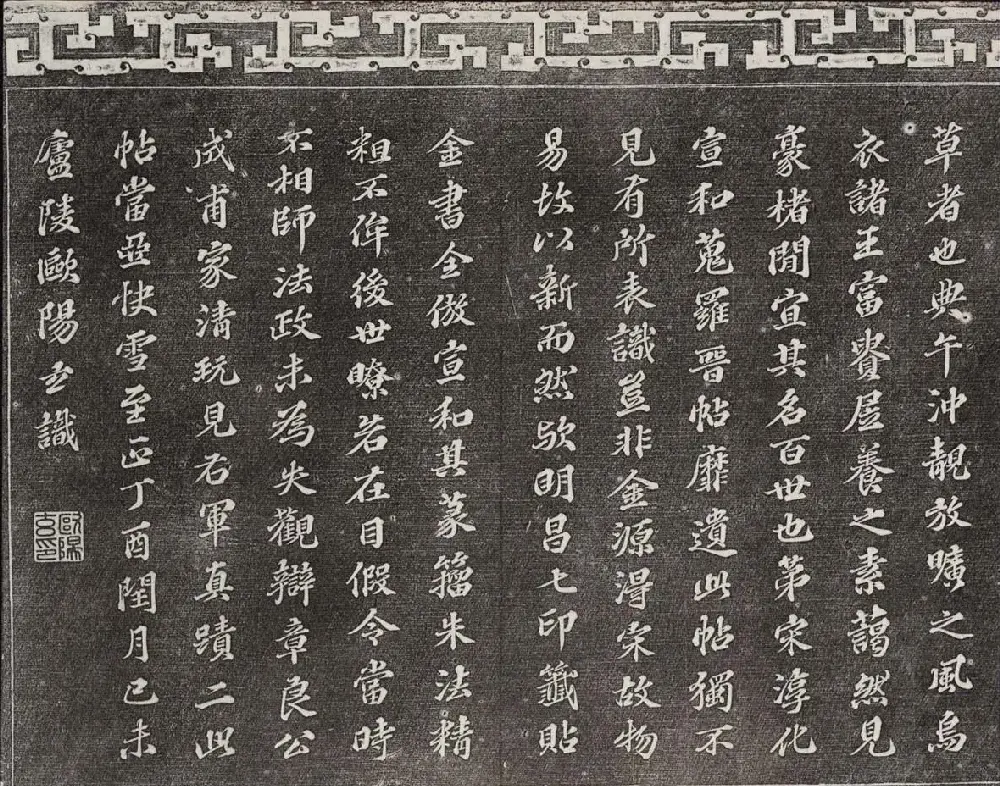 草者也典午沖靚放曠之風烏
衣諸王富貴居養之素藹然見
豪楮間宣其名百世也第宋淳化
宣和蒐羅晋帖靡遺此帖獨不
見有所表識豈非金源得宋故物
易故以新而然歟明昌七印籤貼
金書全倣宣和其篆籀朱法精
粗不侔後世瞭若在目假令當時
不相師法政未為失觀辯章良公
成甫家清玩見右軍真蹟二此
帖當亞快雪至正丁酉閏月己未
廬陵歐陽玄識
歐陽玄印